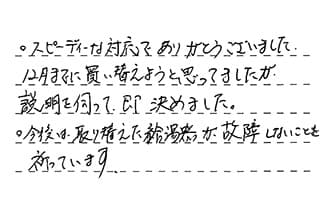 ○スピーディーな対応でありがとうございました.
12月までに買い替えようと思ってましたが
説明を伺って、即決めました。
○今後は、取り替えた給湯器が故障しないことを
祈っています.